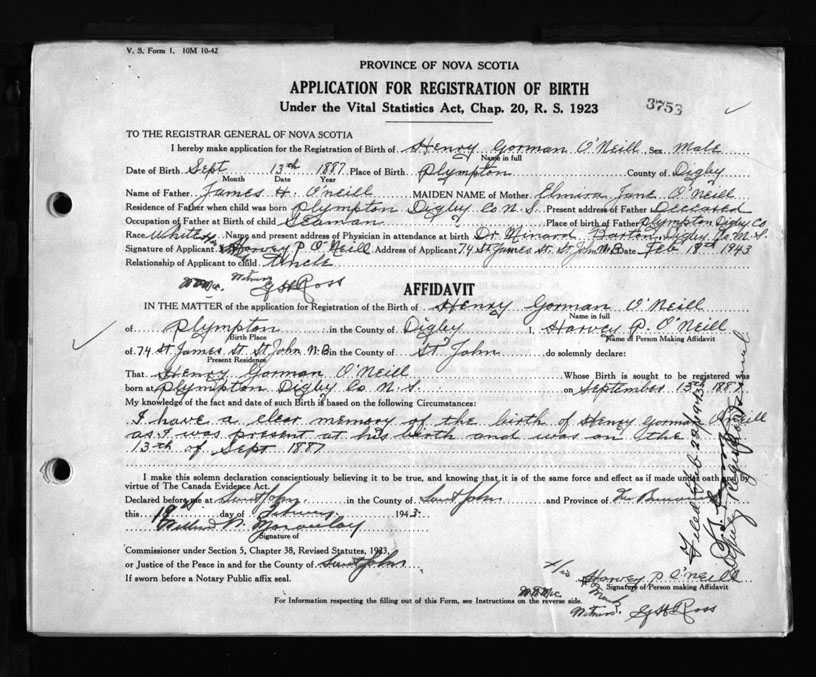 V. S. Form 1. 10M 10-42
PROVINCE OF NOVA SCOTIA
APPLICATION FOR REGISTRATION OF BIRTH
Under the Vital Statistics Act, Chap. 20, R. S. 1923
3753
TO THE REGISTRAR GENERAL OF NOVA SCOTIA
I hereby make application for the Registration of Birth of Henry Gorman O'Neill Sex Male
Name in full
Date of Birth Sept 13th 1887 Place of Birth Plympton County of Digby
Month Date Year
Name of Father James H. O'neill MAIDEN NAME of Mother Elmira Jane O'Neill
Residence of Father when child was born Plympton Digby Co N.S. Present address of Father Deceased
Occupation of Father at Birth of child Seaman Place of birth of Father Plympton Digby Co
Race White Name and present address of Physician in attendance at birth Dr Minard Barton Digby Co N.S.
Signature of Applicant Harvey P. O'Neill Address of Applicant 74 St James St. St John N.B. Date Feb 18th 1943
Relationship of Applicant to child Uncle
Witness G H Ross
AFFIDAVIT
IN THE MATTER of the application for Registration of the Birth of Henry Gorman O'Neill
Name in full
of Plympton in the County of Digby I, Harvey P. O'Neill
Birth Place Name of Person Making Affidavit
of 74 St James St St John N.B in the County of St John do solemnly declare:
Present Residence
That Henry Gorman O'Neill Whose Birth is sought to be registered was
born at Plympton Digby Co N.S. on September 13th 1887
My knowledge of the fact and date of such Birth is based on the following Circumstances:
I have a clear memory of the birth of Henry Gorman O'Neill
as I was present at his birth and was on the
13th of Sept 1887
I make this solemn declaration conscientiously believing it to be true, and knowing that it is of the same force and effect as if made under oath and
virtue of The Canada Evidence Act.
Declared before me at Saint John in the County of Saint John and Province of
this 18th day of February 1943.
Signature of
Commissioner under Section 5, Chapter 38, Revised Statutes, 1923,
or Justice of the Peace in and for the County of Saint John
If sworn before a Notary Public affix seal.
His Harvey P O'Neill
Mark Signature of Person making Affidavit
Witness G H Ross
For Information respecting the filling out of this Form, see Instructions on the reverse side.
Filed Feb 22nd 1943
Deputy Registrar General